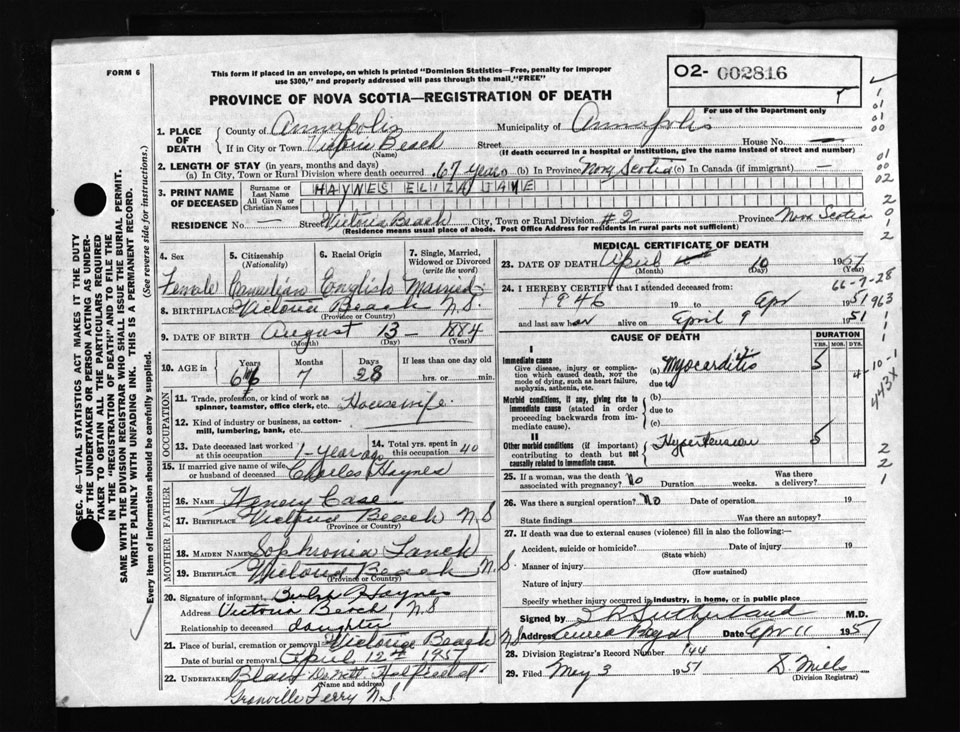 FORM 6
This form if placed in an envelope, on which is printed "Dominion Statistics—Free, penalty for improper
use $300," and properly addressed will pass through the mail "FREE"
O2- 002816
T
For use of the Department only
PROVINCE OF NOVA SCOTIA—REGISTRATION OF DEATH
1. PLACE OF DEATH
County of Annapolis Municipality of Annapolis
If in City or Town Victoria Beach Street House No. —
(Name) (If death occurred in a hospital or institution, give the name instead of street and number)
2. LENGTH OF STAY (in years, months and days)
(a) In City, Town or Rural Division where death occurred 67 years (b) In Province Nova Scotia (c) In Canada (if immigrant) —
3. PRINT NAME OF DECEASED
Surname or Last Name
All Given or Christian Names
HAYNES ELIZA JANE
RESIDENCE No. — Street Victoria Beach City, Town or Rural Division #2 Province Nova Scotia
(Residence means usual place of abode. Post Office Address for residents in rural parts not sufficient)
4. Sex
Female
5. Citizenship
(Nationality)
Canadian
6. Racial Origin
English
7. Single, Married,
Widowed or Divorced
(write the word)
Married
8. BIRTHPLACE Victoria Beach N.S.
(Province or Country)
9. DATE OF BIRTH August 13 — 1884
(Month) (Day) (Year)
10. AGE in
Years Months Days If less than one day old
66 7 28 hrs. or min.
OCCUPATION
11. Trade, profession, or kind of work as
spinner, teamster, office clerk, etc. Housewife
12. Kind of industry or business, as cotton-
mill, lumbering, bank, etc.
13. Date deceased last worked
at this occupation 1-year ago
14. Total yrs. spent in
this occupation 40
15. If married give name of wife
or husband of deceased Charles Haynes
FATHER
16. NAME Henry Case
17. BIRTHPLACE Victoria Beach N S
(Province or Country)
MOTHER
18. MAIDEN NAME Sophronia
19. BIRTHPLACE Victoria Beach N.S.
(Province or Country)
20. Signature of informant Haynes
Address Victoria Beach N S
Relationship to deceased daughter
21. Place of burial, cremation or removal Victoria Beach
Date of burial or removal April 12th 1951
22. UNDERTAKER
(Name and address)
Granville Ferry N.S.
MEDICAL CERTIFICATE OF DEATH
23. DATE OF DEATH April 10 1951
(Month) (Day) (Year)
24. I HEREBY CERTIFY that I attended deceased from:
1946 19 to Apr 1951
and last saw her alive on April 9 1951
CAUSE OF DEATH
DURATION
YRS. MOS. DYS.
I
Immediate cause
Give disease, injury or complica-
tion which caused death, not the
mode of dying, such as heart failure,
asphyxia, asthenia, etc.
(a) Myocarditis 5
due to
Morbid conditions, if any, giving rise to
immediate cause (stated in order
proceeding backwards from im-
mediate cause).
(b)
due to
(c)
II
Other morbid conditions (if important)
contributing to death but not
causally related to immediate cause.
Hypertension 5
25. If a woman, was the death
associated with pregnancy? No Duration weeks. Was there
a delivery?
26. Was there a surgical operation? No Date of operation 19
State findings Was there an autopsy?
27. If death was due to external causes (violence) fill in also the following:—
Accident, suicide or homicide? Date of injury 19
(State which)
Manner of injury
(How sustained)
Nature of injury
Specify whether injury occurred in industry, in home, or in public place
Signed by Sutherland M.D.
Address Date Apr 11 1951
28. Division Registrar's Record Number 144
29. Filed May 3 1951
(Division Registrar)
SEC. 46—VITAL STATISTICS ACT MAKES IT THE DUTY
OF THE UNDERTAKER OR PERSON ACTING AS UNDER-
TAKER TO OBTAIN ALL THE PARTICULARS REQUIRED
IN THE "REGISTRATION OF DEATH" AND TO FILE THE
SAME WITH THE DIVISION REGISTRAR WHO SHALL ISSUE THE BURIAL PERMIT.
WRITE PLAINLY WITH UNFADING INK. THIS IS A PERMANENT RECORD.
Every item of information should be carefully supplied. (See reverse side for instructions.)
1
01
01
00
01
00
02
2
0
1
2
66-7-28
963
1
1
1
4-10-1
443X
2
2
1